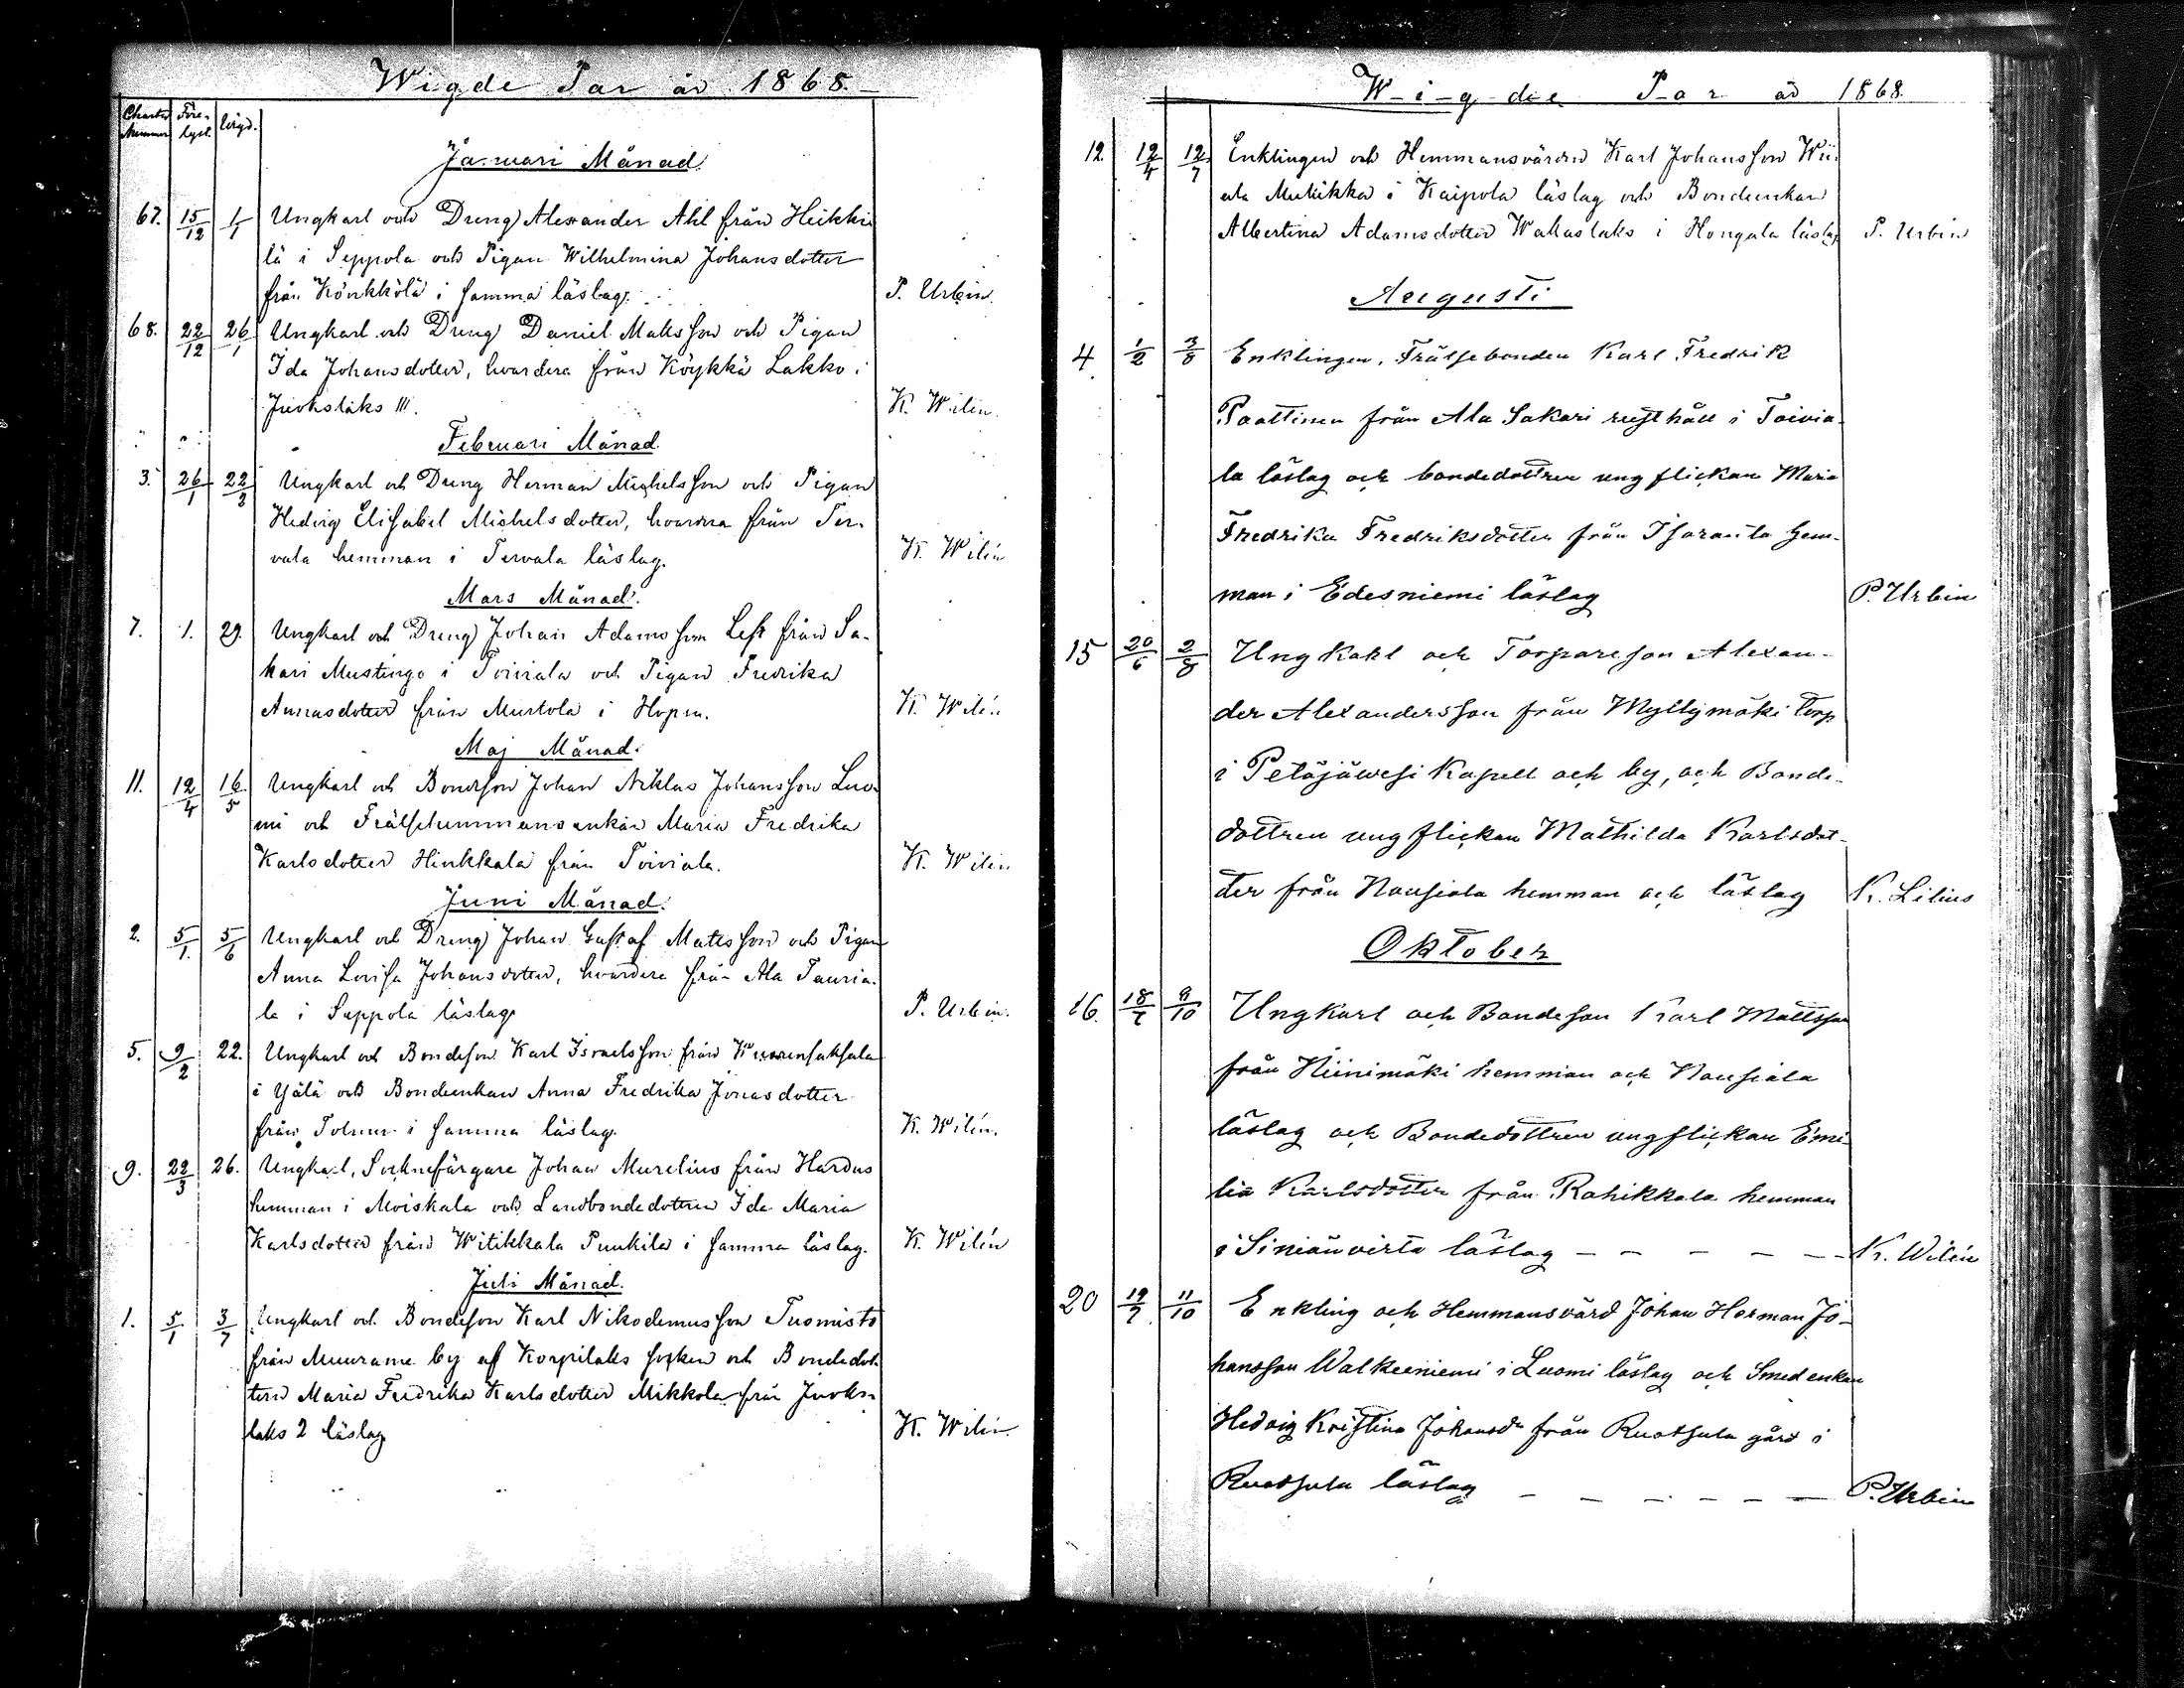 Wigde Par år 1868.
Charta Nummer Före-lyst. Vigd.
Januari Månad
67. 15/12 1/1 Ungkarl och Dreng Alexander Ahl från Heikki
lä i Seppola och Pigan Wilhelmina Johansdotter
från Könkkölä i samma läslag. P. Urbin.
68. 22/12 26/1 Ungkarl och Dreng Daniel Matsson och Pigan
Ida Johansdotter, hvardera från Köykkä Lakko i
Juokslaks III. K. Wilén.
Februari Månad
3. 26/1 22/2 Ungkarl och Dreng Herman Michelsson och Pigan
Hedvig Elisabet Michelsdotter, hvardera från Ter-
vala hemman i Tervala läslag. K. Wilén
Mars Månad.
7. 1. 29. Ungkarl och Dreng Johan Adamsson Lest från Sa-
kari Mustingo i Toiviala och Pigan Fredrika
Annasdotter från Murtola i Hopsu. K. Wilén
Maj Månad.
11. 12/4 16/5 Ungkarl och Bondeson Johan Niklas Johansson Luo-
mi och Frälsehemmansenkan Maria Fredrika
Karlsdotter Hinkkala från Toiviala. K. Wilén
Juni Månad.
2. 5/1. 5/6 Ungkarl och Dreng Johan Gustaf Mattsson och Pigan
Anna Lovisa Johansdotter, hvardera från Ala Tauria-
la i Seppola läslag P. Urbin.
5. 9/2 22. Ungkarl och Bondeson Karl Israelsson från
i Yälä och Bondeenkan Anna Fredrika Jonasdotter
från i samma läslag. K. Wilén.
9. 22/3 26. Ungkarl, Socknefärgare Johan Murelius från Hardus
hemman i Moiskala och Landbondedottren Ida Maria
Karlsdotter från Witikkala Puukila i samma läslag. K. Wilén
Juli Månad.
1. 5/1 3/7 Ungkarl och Bondeson Karl Nikodemusson Tuomisto
från Muurame by af Korpilaks socken och Bondedot-
tren Maria Fredrika Karlsdotter Mikkola från Juoks-
laks 2 läslag K. Wilén
W-i-g-d-e P-a-r år 1868.
12. 12/4 12/7 Enklingen och Hemmansvärden Karl Johansson Wii-
ala Mukikka i Kaipola läslag och Bondeenkan
Albertina Adamsdotter Wallaslaks i Hongala läslag P. Urbin
Augusti
4 1/2 3/8 Enklingen, Frälsebonden Karl Fredrik
Paattinen från Ala Sakari rusthåll i Toivia-
la läslag och bondedottren ungflickan Maria
Fredrika Fredriksdotter från Isaranta hem-
man i Edesniemi läslag P. Urbin
15 20/6 2/8 Ungkarl och Torpareson Alexan-
der Alexandersson från Myllymäki torp
i Petäjävesi Kapell och by, och Bonde-
dottren ungflickan Mathilda Karlsdot-
ter från Nousiala hemman och läslag K. Lilius
Oktober
16. 18/7 9/10 Ungkarl och Bondeson Karl Mattsson
från Niinimäki hemman och Nousiala
läslag och Bondedottren ungflickan Emi-
lia Karlsdotter från Rahikkala hemman
i Siniänvirta läslag - - - - - K. Wilén
20 19/7 11/10 Enkling och Hemmansvärd Johan Herman Jo-
hansson Walkeeniemi i Luomi läslag och Smedenkan
Hedvig Kristina Johansdr från Ruotsula gård i
Ruotsula läslag - - - - - - P. Urbin